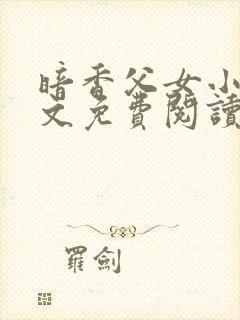 暗香父女小
文免費閱讀
羅劍